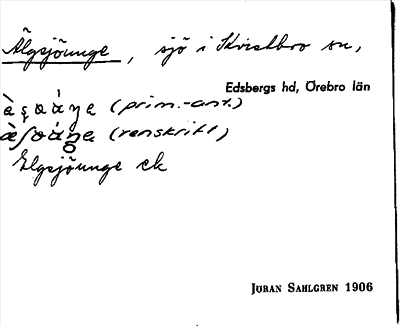 Älgsjöunge, sjö i Kvistbro sn,
Edsbergs hd, Örebro län
(prim.-ant.)
(renskrift)
Elgsjöunge ek
JÖRAN SAHLGREN 1906